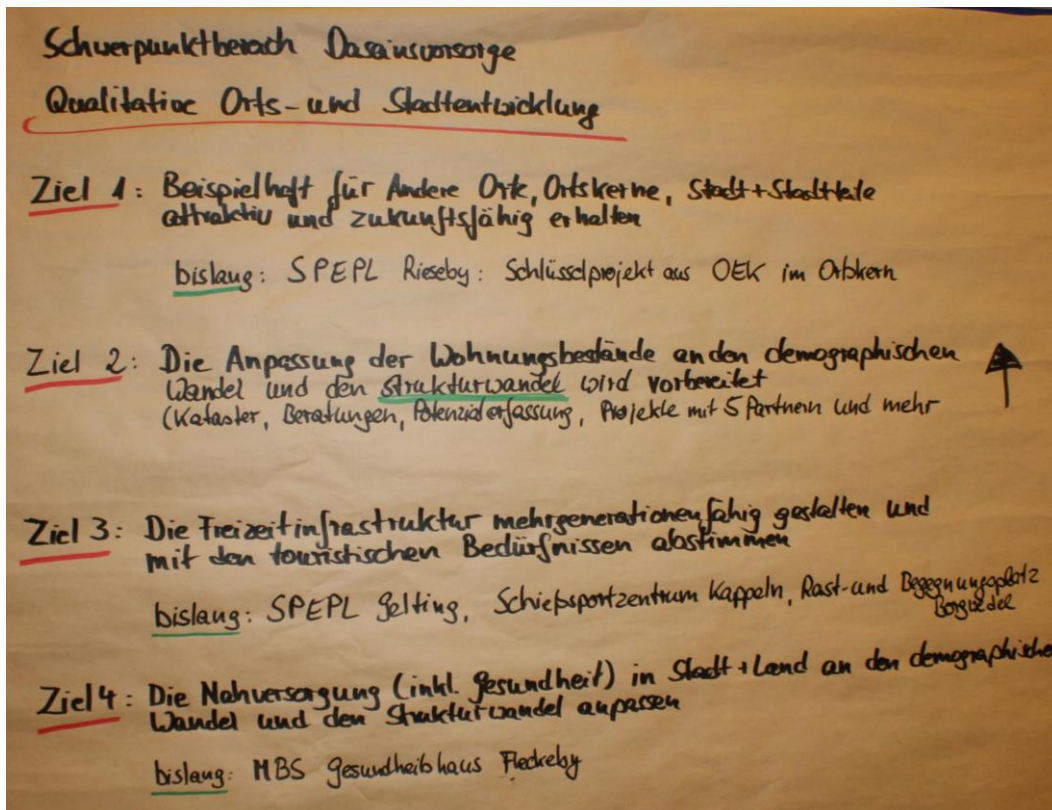 Schwerpunktbereich Daseinsvorsorge
Qualitative Orts- und Stadtentwicklung
Ziel 1: Beispielhaft für Andere Orte, Ortskerne, Stadt+Stadtteile
attraktiv und zukunftsfähig erhalten
bislang: SPEPL Rieseby: Schlüsselprojekt aus OEK im Ortskern
Ziel 2: Die Anpassung der Wohnungsbestände an den demographischen
Wandel und den Strukturwandel wird vorbereitet
(Kataster, Beratungen, Potenzialerfassung, Projekte mit 5 Partnern und mehr
Ziel 3: Die Freizeitinfrastruktur mehrgenerationenfähig gestalten und
mit den touristischen Bedürfnissen abstimmen
bislang: SPEPL Gelting, Schießsportzentrum Kappeln, Rast- und Begegnungsplatz
Borgwedel
Ziel 4: Die Nahversorgung (inkl. Gesundheit) in Stadt + Land an den demographische
Wandel und den Strukturwandel anpassen
bislang: MBS Gesundheitshaus Fleckeby